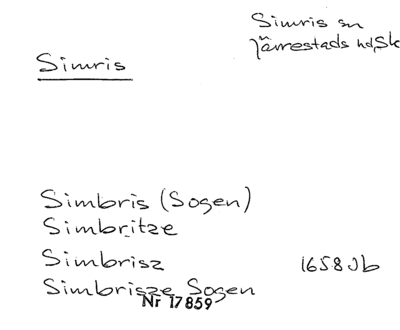 Simris sn
Järrestads hd, Sk
Simris
Simbris (Sogen)
Simbritze
Simbrisz 1658 Jb
Simbrisze Sogen
Nr 17859